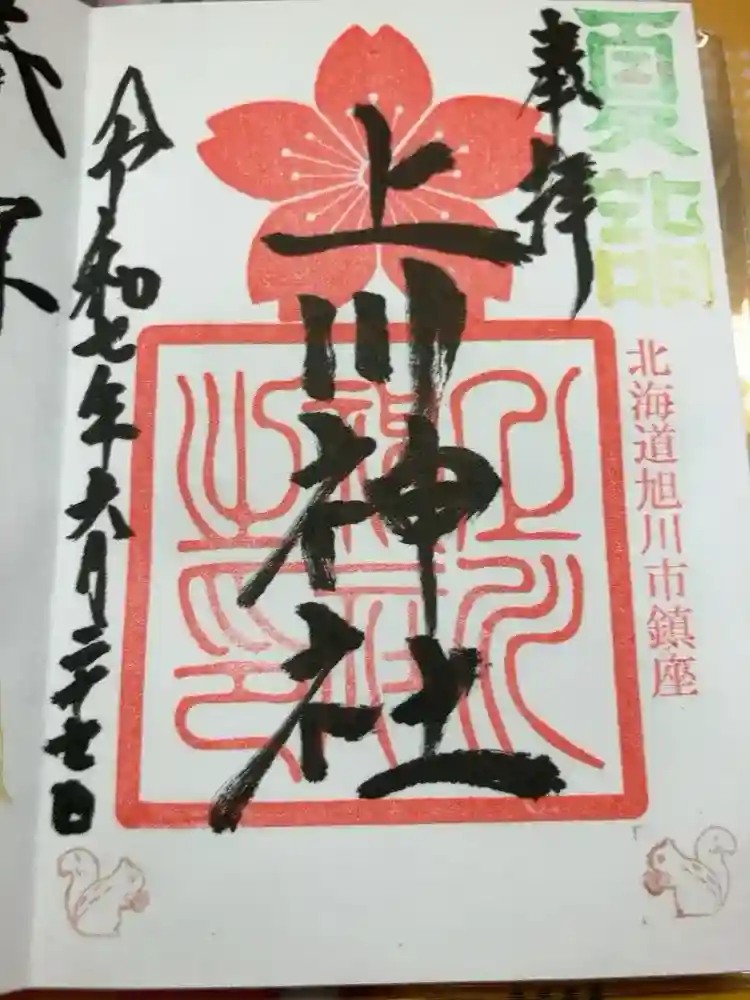 夏詣
奉拝
北海道旭川市鎮座
上川神社
上川神社之印
令和七年六月二十七日